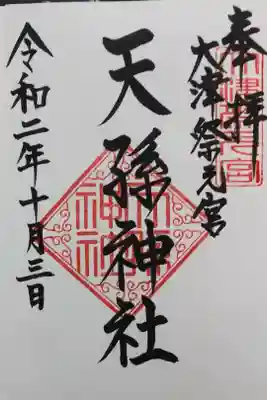 奉拝
大津祭元宮
天孫神社
令和二年十月三日